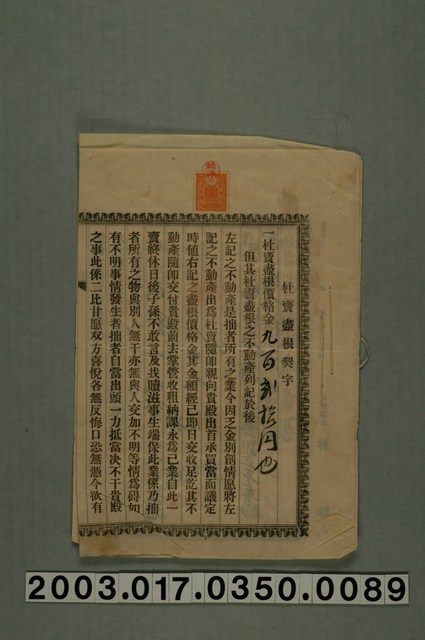 杜賣盡根契字
一杜賣盡根價格金九百貳拾円也
但其杜賣盡根之不動產列記於後
左記之不動產是拙者所有之業今因乏金別創情愿將左
記之不動產出為杜賣隨即親向貴殿出首承買當面議定
時値右記之盡根價格金其金額經已即日交收足訖其不
動產隨即交付貴殿前去掌管收租納課永為己業自此一
賣終休日後子孫不敢言及找贖滋事生端保此業係乃拙
者所有之物與別人無干亦無與人交加不明等情為碍如
有不明事情發生者拙者自當出頭一力抵當決不干貴殿
之事此係二比甘愿双方喜悅各無反悔口恐無憑今欲有
2003.017.0350.0089